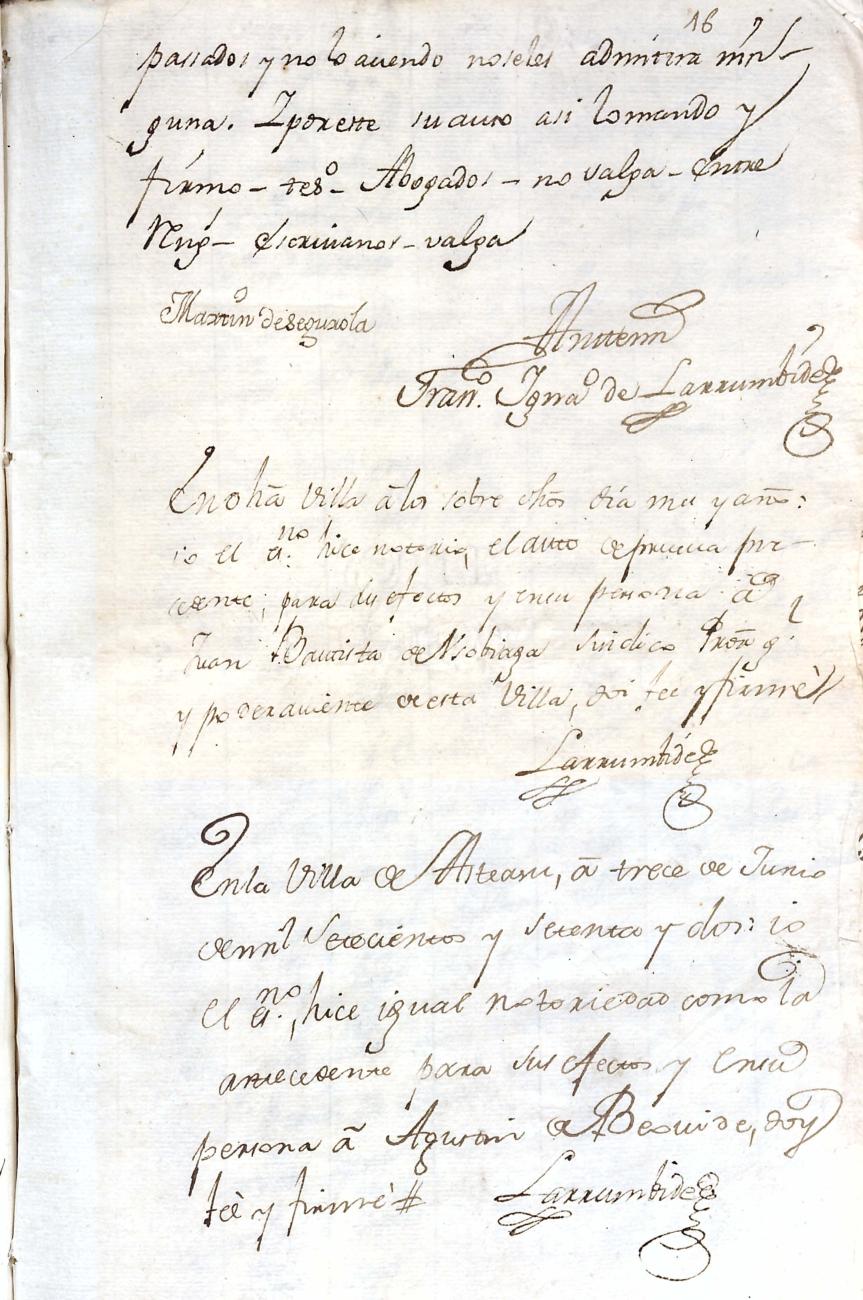 16
passados y no lo aviendo no seles admitira nin-
guna. Y por este su auto asi lo mando y
firmo - tesº - Abogados - no valga - entre
Reng - escrivanos - valga
Martin de Segurola
Antemi
Franº. Ignaº de Larrumbide
En oha Villa â los sobre dhos día mes y año:
io el esº. hice notorio, el auto de prueva pre-
cedente, para sus efectos y en su persona â
Juan Bautista de Vsobiaga Sindico Prór gl
y poderaviente de esta Villa, doi feè y firmè
Larrumbide
En la Villa de Asteasu, â trece de Junio
de mil Setecientos y setenta y dos: io
el esnº., hice igual notoriedad como la
antecedente para sus efectos y en su
persona â Agustin de Beovide, doy
feè y firmè #
Larrumbide